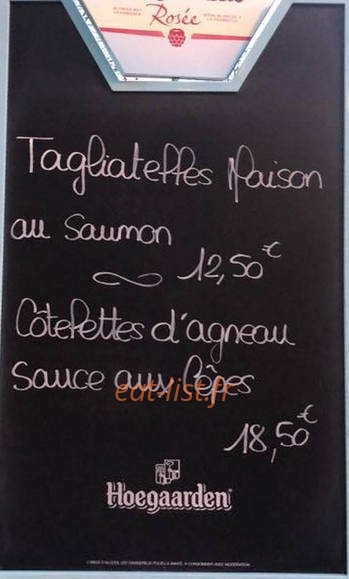 Rosée
Tagliatelles Maison
au Saumon
12,50€
Côtelettes d'agneau
sauce aux Cêpes
eat-list.fr
18,50€
Hoegaarden
L'ABUS D'ALCOOL EST DANGEREUX POUR LA SANTÉ, À CONSOMMER AVEC MODÉRATION.